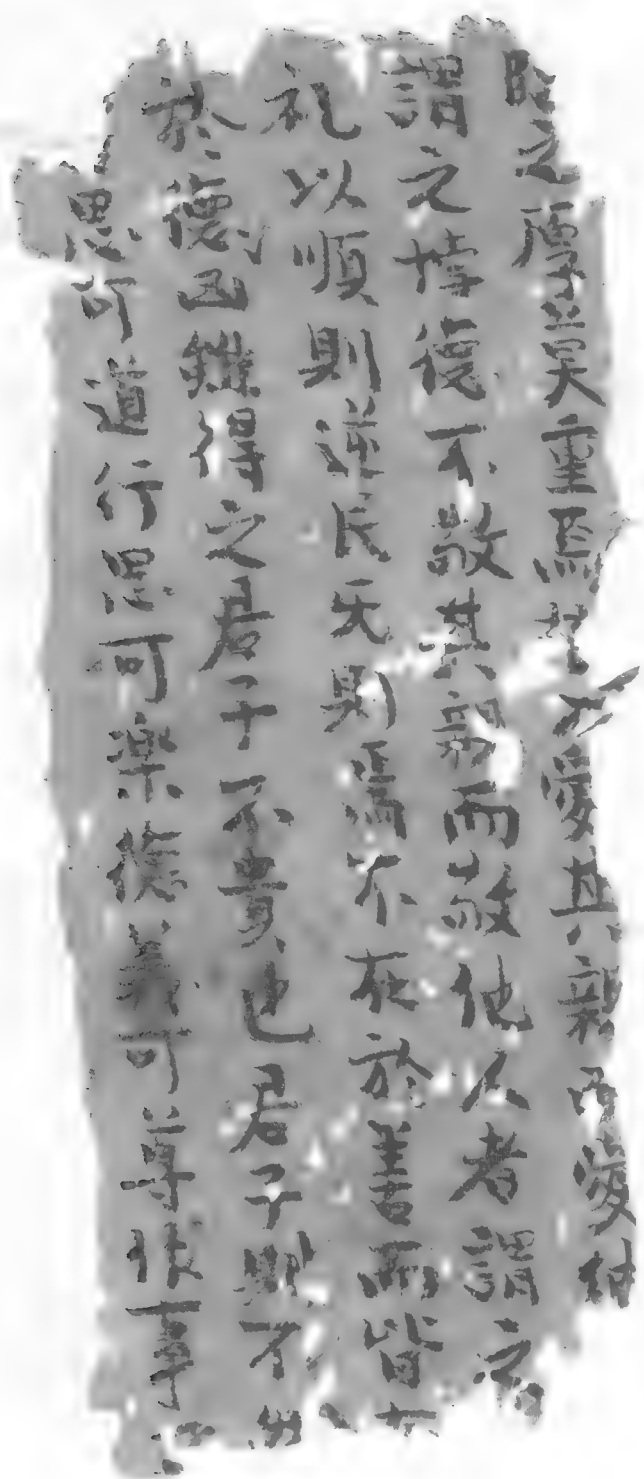 臨之厚莫重焉故不愛其親而愛他
謂之悖德不敬其親而敬他人者謂之
礼以順則逆民无則焉不在於善而皆在
於德凶雖得之君子不貴也君子則不
思可道行思可樂德義可尊作事